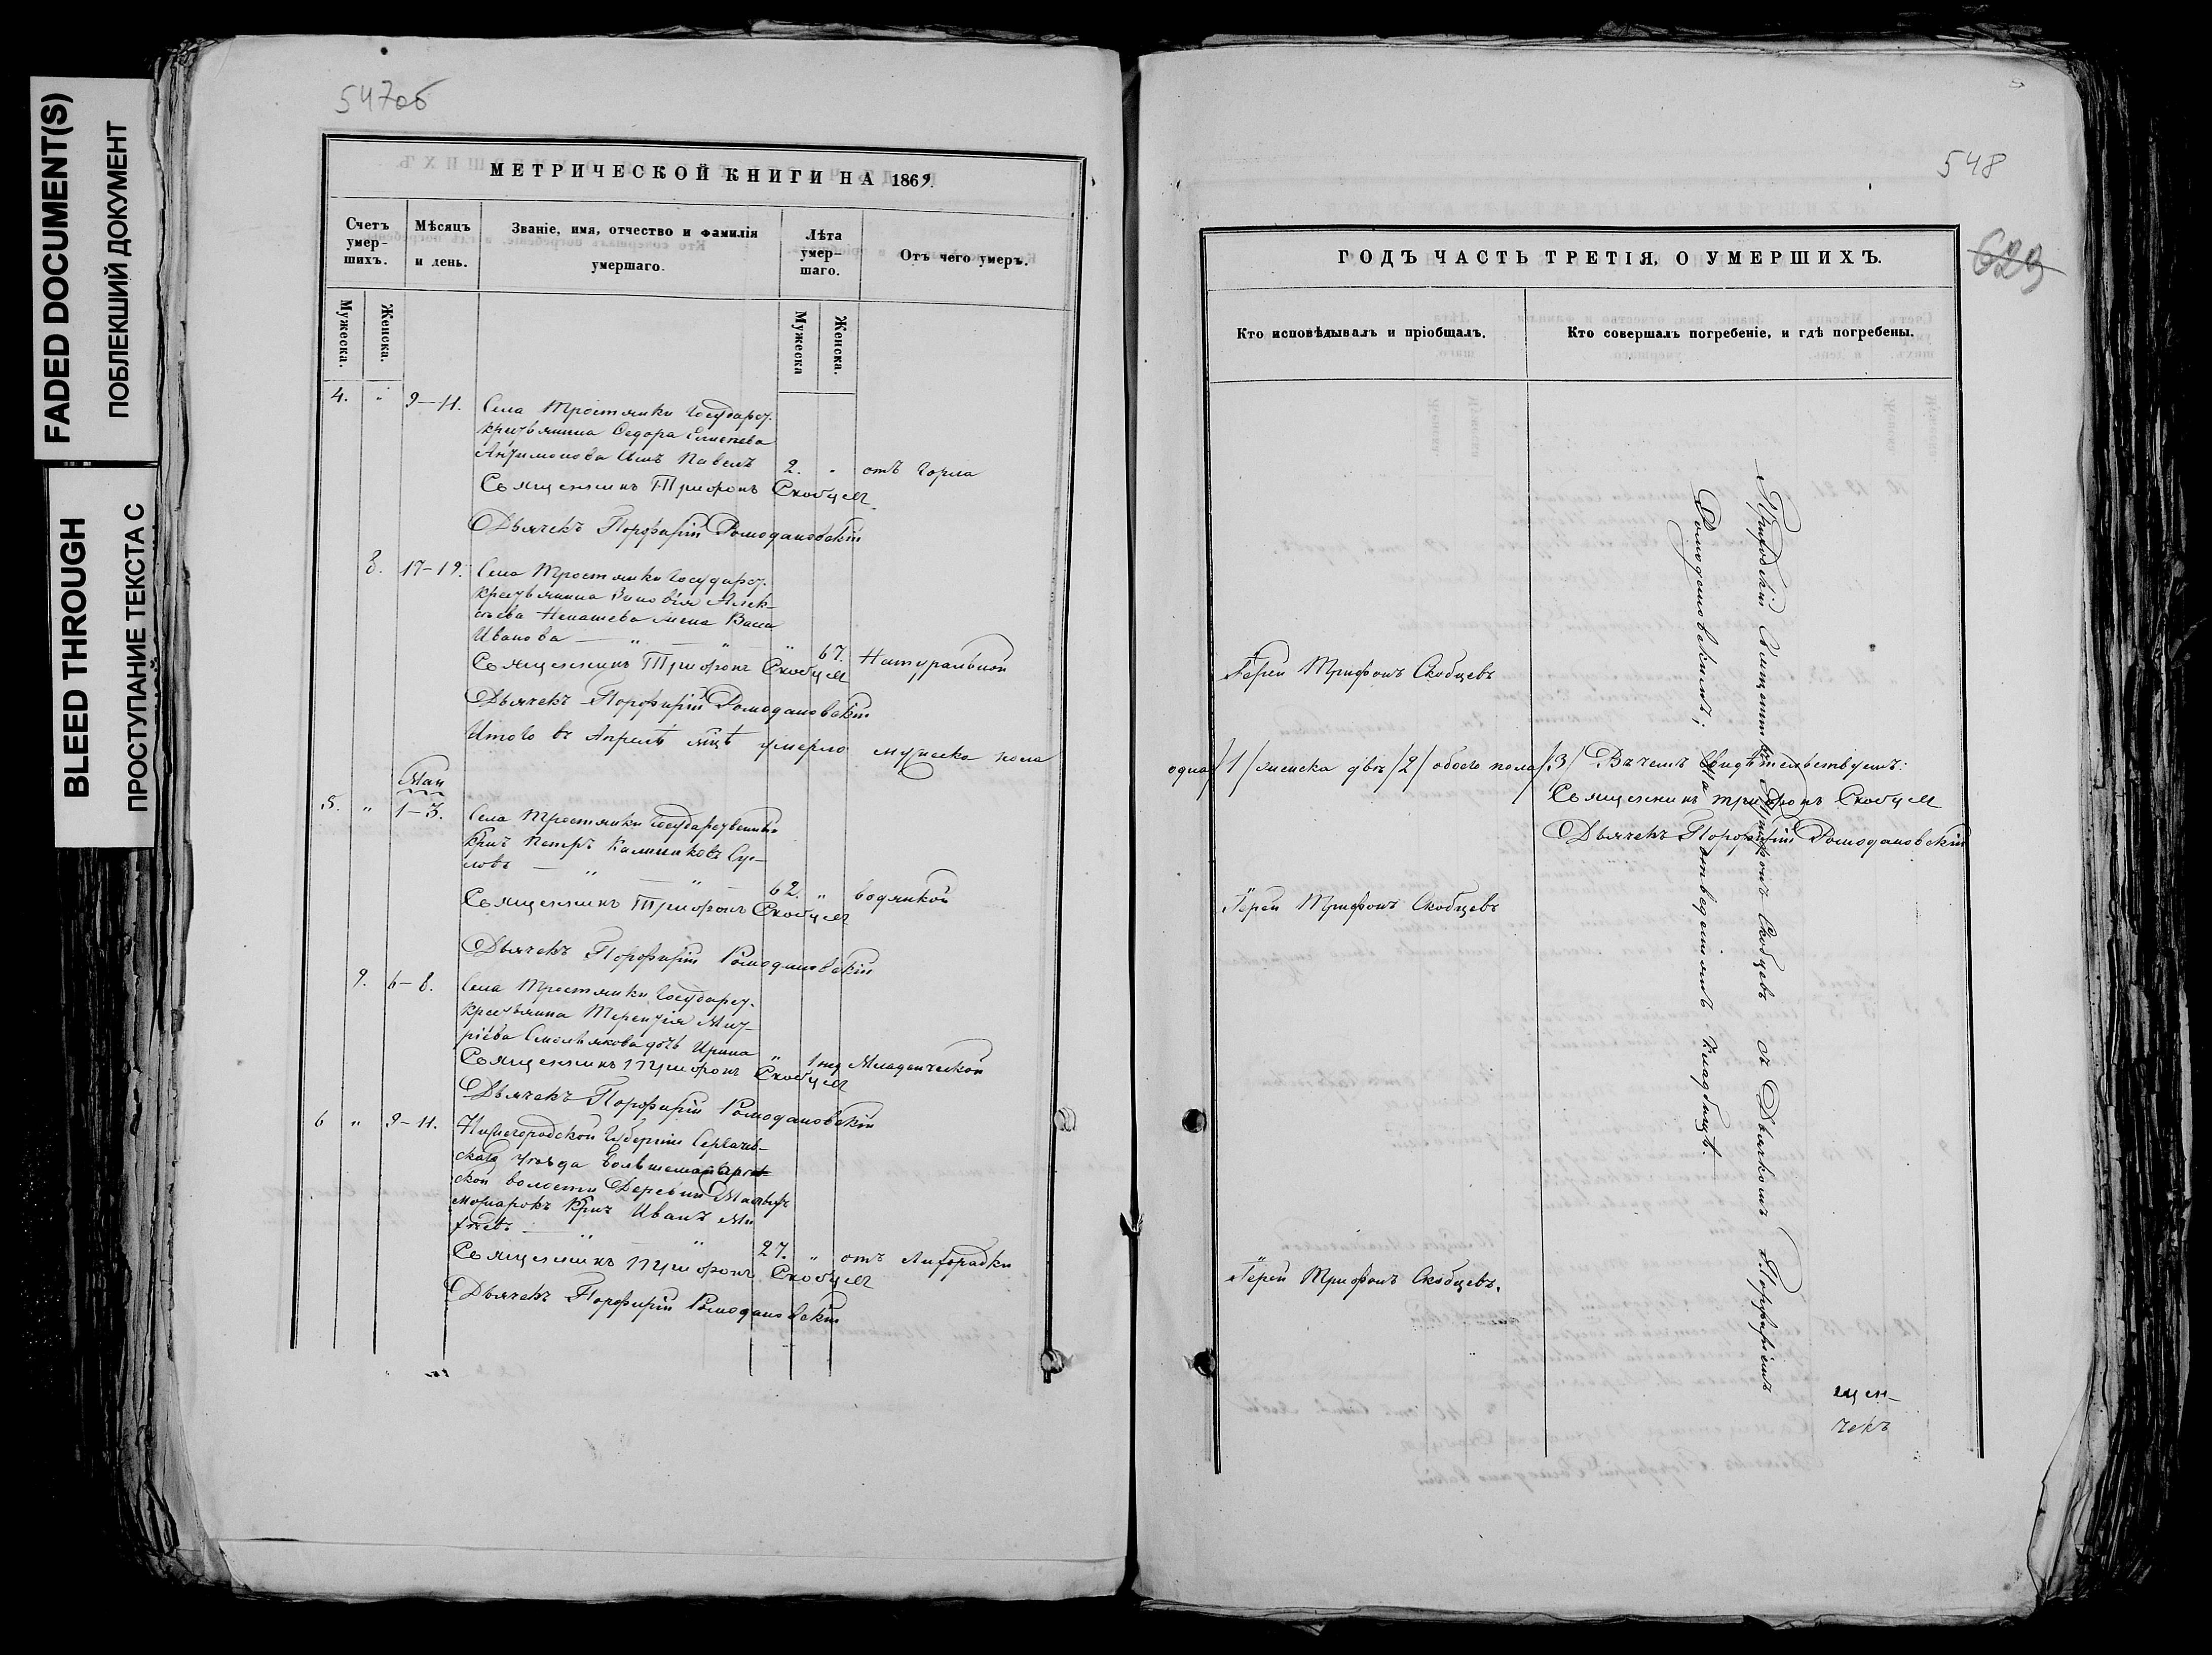 FADED DOCUMENT(S)
ПОБЛЕКШИЙ ДОКУМЕНТ
BLEED THROUGH
ПРОСТУПАНИЕ ТЕКСТА С
547об
МЕТРИЧЕСКОЙ КНИГИ НА 1869.
Счетъ умер-шихъ.
Мѣсяцъ и день.
Званіе, имя, отчество и фамилія умершаго.
Лѣта умер-шаго.
Отъ чего умеръ.
Мужеска.
Женска.
Мужеска
Женска.
4. " 9–11. Села Тростянки Государст.
крестьянина Федора
сынъ Павелъ 2. " отъ горла
Священникъ Трифонъ Скобцев
Дьячекъ Порфирій Ромодановскій
8. 17–19. Села Тростянки Государст.
крестьянина Зиновія Алек-
сѣева Ненашева жена Васса
Иванова " " 67. Натуральной
Священникъ Трифонъ Скобцев
Дьячекъ Порфирій Ромодановскій
Итого въ Апрелѣ мцѣ умерло мужеска пола
Маи
5. " 1–3. Села Тростянки Государственный
Крнъ Петръ Калинниковъ Сус-
ловъ " " 62. " водянкой
Священникъ Трифонъ Скобцев
Дьячекъ Порфирій Ромодановскій
9. 6–8. Села Тростянки Государст.
крестьянина Терентія
Смольякова дочь Ирина
" 1 Младенческой
Священникъ Трифонъ Скобцев
Дьячекъ Порфирій Ромодановскій
6 " 9–11. Нижегородской Губерніи Сергачев-
скаго Уѣзда
ской волости Деревни
Крнъ Иванъ
" " 27. " отъ лихорадки
Священникъ Трифонъ Скобцев
Дьячекъ Порфирій Ромодановскій
548
629
ГОДЪ ЧАСТЬ ТРЕТІЯ, О УМЕРШИХЪ.
Кто исповѣдывалъ и пріобщалъ.
Кто совершалъ погребеніе, и гдѣ погребены.
Іерей Трифонъ Скобцевъ
одна /1/ женска двѣ /2/ обоего пола /3/ Въ чемъ свидѣтельствуемъ:
Священникъ Трифонъ Скобцев
Дьячекъ Порфирій Ромодановскій
Іерей Трифонъ Скобцевъ
Іерей Трифонъ Скобцевъ.
Приходскій Священникъ Трифонъ Скобцевъ съ Дьячкомъ Порфиріемъ
Ромодановскимъ; на отведенномъ кладбищѣ.
щен-
чекъ